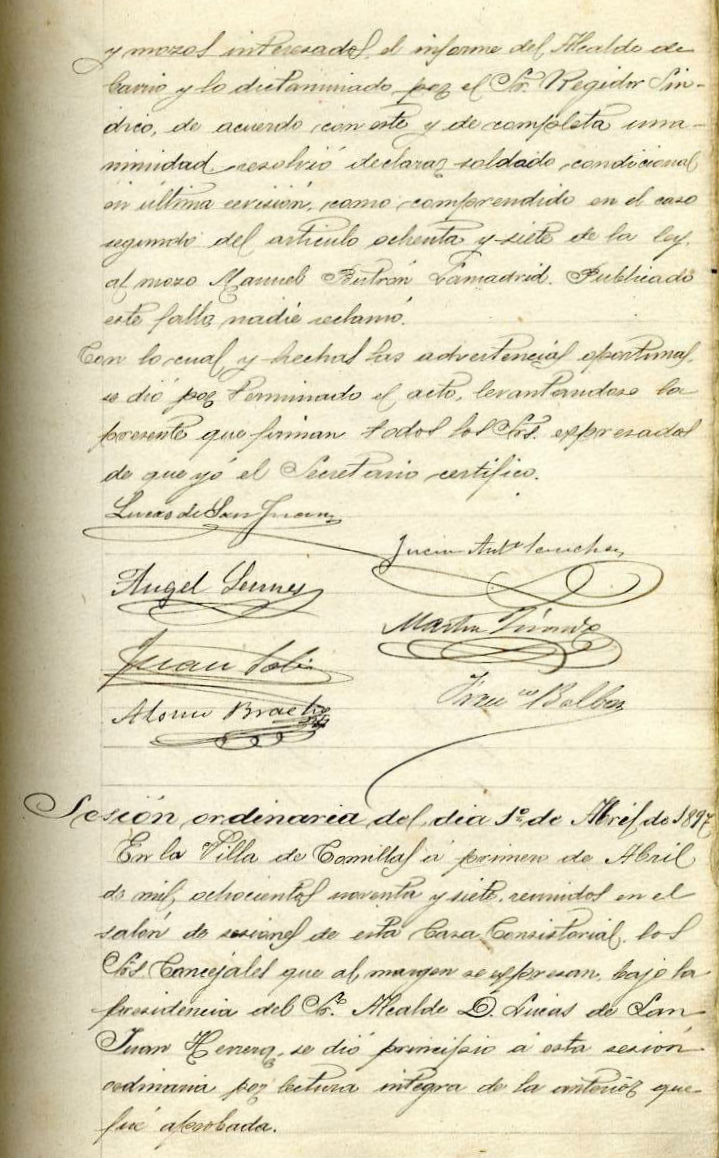 y mozos interesados, el informe del Alcalde de
barrio y lo dictaminado por el Sr. Regidor Sín-
dico, de acuerdo con este y de completa una-
nimidad resolvió declarar soldado condicional
en última revisión, como comprendido en el caso
segundo del artículo ochenta y siete de la ley,
al mozo Manuel Beltrán Lamadrid. Publicado
este fallo, nadie reclamó.
Con lo cual, y hechas las advertencias oportunas,
se dió por terminado el acto, levantándose la
presente que firman todos los Srs. expresados
de que yó el Secretario certifico.
Lucas de San Juan
Juan Antº
Angel
Martin
Juan
Alonso Bracho
Franco Balbas
Sesión ordinaria del dia 1º de Abril de 1897
En la Villa de Comillas á primero de Abril
de mil, ochocientos noventa y siete, reunidos en el
salón de sesiones de esta Casa Consistorial, los
Srs. Concejales que al margen se expresan, bajo la
presidencia del Sr. Alcalde D. Lucas de San
Juan Herrera, se dió principio á esta sesión
ordinaria por lectura integra de la anterior que
fué aprobada.